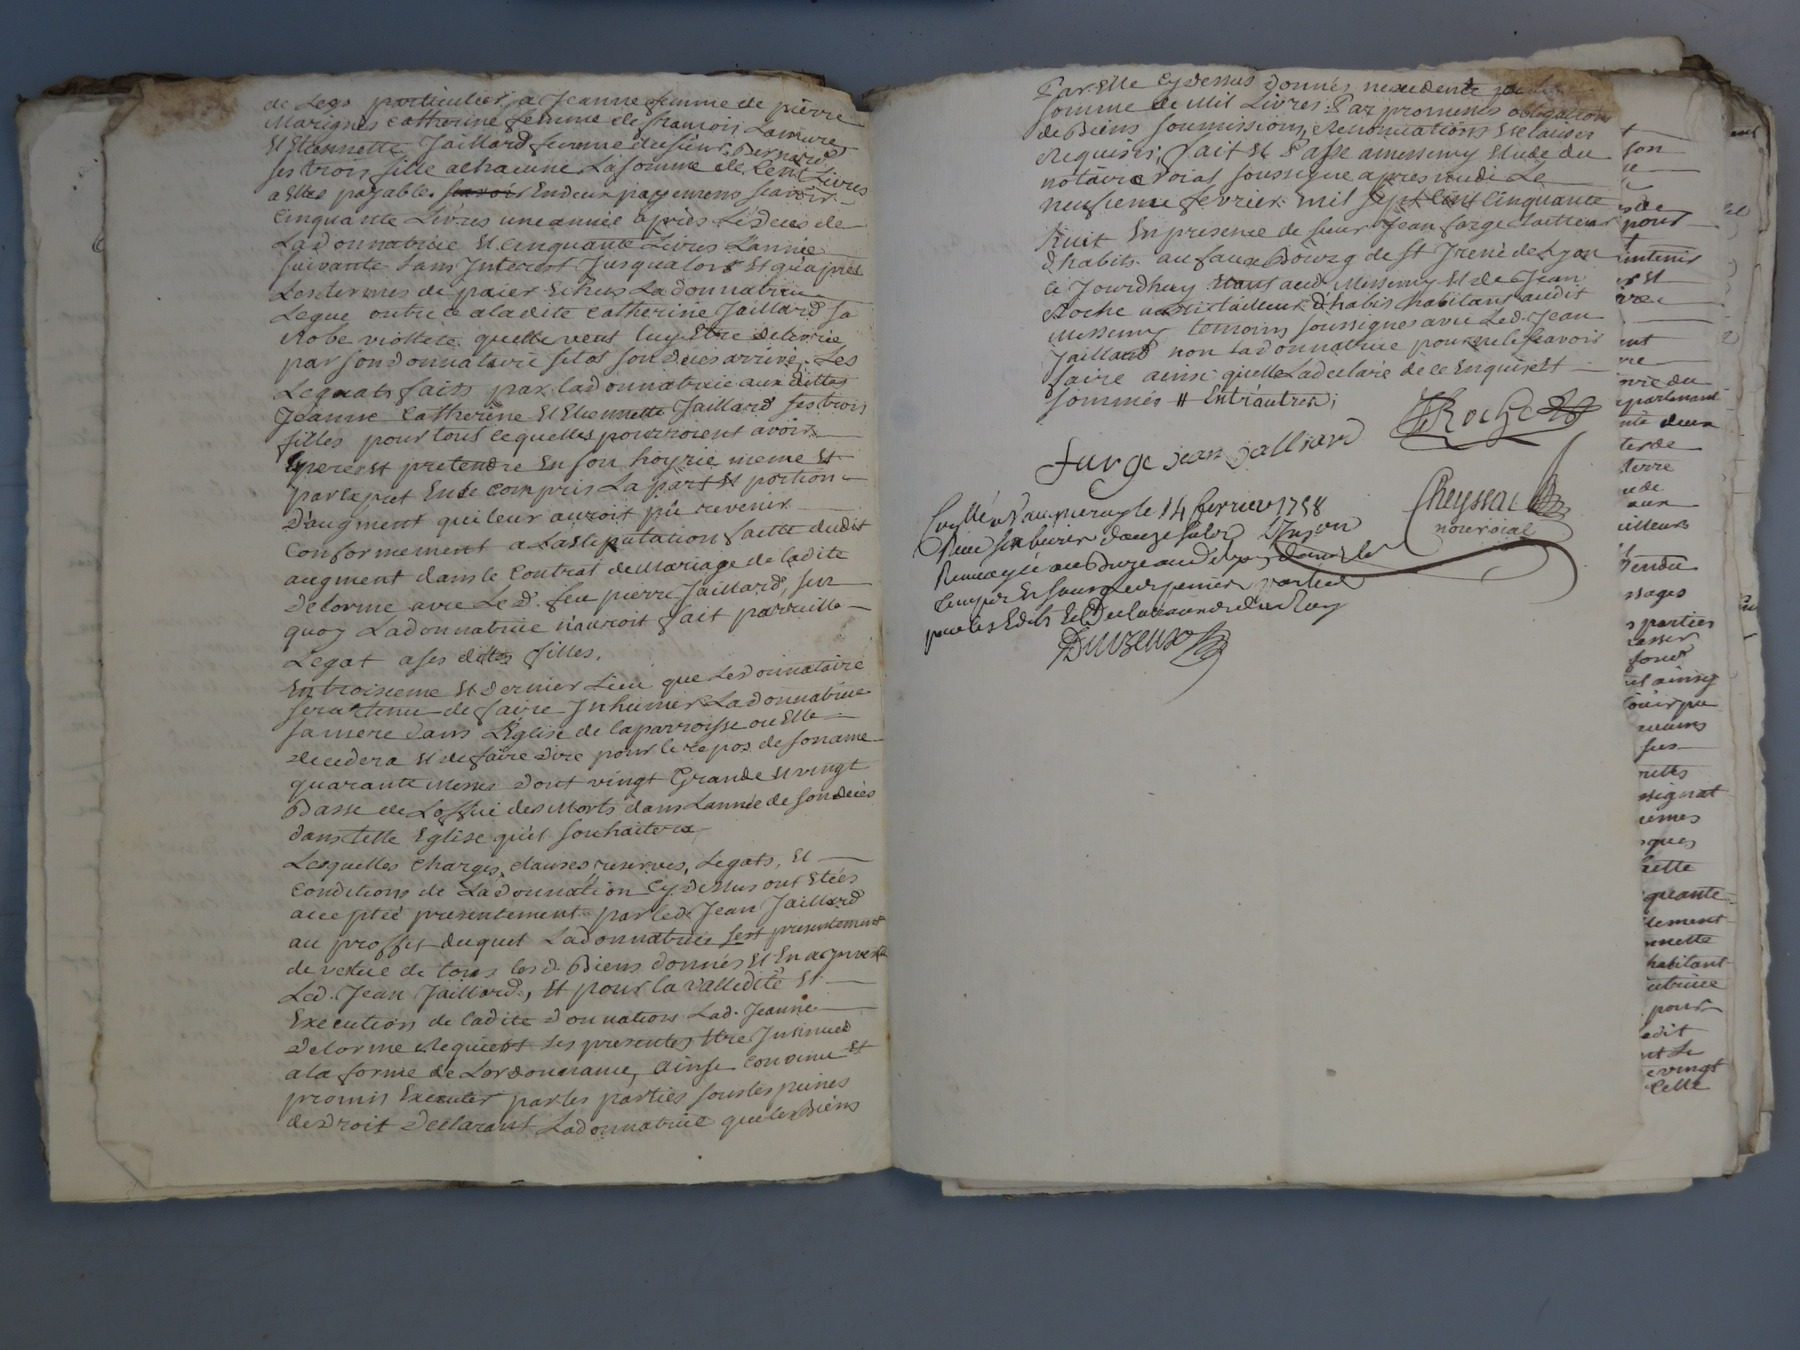 de Legs particulier a Jeanne femme de pierre
Marignes Catherine femme de françois Lamure
Et Etiennette Jaillard femme du sieur Bernard
ses trois fille a chacune La somme de Cent Livres
a Elles payables scavoir En deux payemens scavoir
Cinquante Livres une année après Le deces de
La donnatrice Et cinquante Livres L'année
suivante sans Interest Jusqualors Et qu'apres
Les termes de paier Echus La donnatrice
Legue outre a ladite Catherine Jaillard sa
Robe viollete quelle veut luy Etre delivrée
par son donnataire sitot son deces arrivé. Les
Legats faits par la donnatrice aux dittes
Jeanne Catherine Et Etiennette Jaillard ses trois
filles pour tout ce quelles pourroient avoir
Esperer Et pretendre En son hoyrie meme Et
par exprest En ce compris La part Et portion
D'augment qui leur auroit pû revenir
Conformement a La stiputation faitte dudit
augment dans le Contrat de Mariage de ladite
Delorme avec Le d. feu pierre Jaillard, sur
quoy La donnatrice n'auroit fait pareille
Legat a ses dittes filles.
En troisieme Et dernier Lieu que Le donnataire
sera tenu de faire Inhumer La donnatrice
sa mere dans L'Eglise de la parroisse ou Elle
decedera Et de faire dire pour le repos de son ame
quarante Messes dont vingt Grande Et vingt
Basse de L'offic des Morts dans L'année de son deces
dans telle Eglise qu'il souhaitera
Lesquelles Charges, clauses, reserves, Legats, Et
Conditions de La donnation Cy dessus ont Etées
acceptée presentement par led. Jean Jaillard
au proffit duquel La donnatrice s'est presentement
devetue de tous les d. Biens donnés Et En a Investi
Led. Jean Jaillard, Et pour la vallidité Et
Execution de ladite Donnation Lad. Jeanne
Delorme Requiert Les presentes Etre Insinuée
a la forme de L'ordonnance, Ainsy Convenu Et
promis Executer par les parties sous les peines
de Droit Declarant La donnatrice que les Biens
Par Elle Cy dessus donnés n'excedent
somme de Mil Livres. Par promesses obligations
de Biens soumissions, Renonciations Et clauses
Requises, fait Et Passé a messimy Etude du
notaire roial soussigné apres midi Le
neufieme fevrier mil sept Cent Cinquante
Huit En presence de sieur Jean farge tailleur
d'habits au faux Bourg de St Irené de Lyon
ce Jourdhuy Etant aud. Messimy Et de Jean
Roche aussi tailleur d'habis habitant audit
messimy temoins soussignés avec Led. Jean
Jaillard non La donnatrice pour ne le scavoir
faire ainsi quelle La declaré de ce Enquise Et
sommée # Entr'autres;
JRoche
farge Jean Jalliard
Cheyssac
no.re roial
Conllé a Vaugneray le 14 fevrier 1758
Reçu six livres douze sols
Renvoyé au Bureau de Lyon dans le
temps Et sous les peines portées
par les Edits Et Declarations du Roy